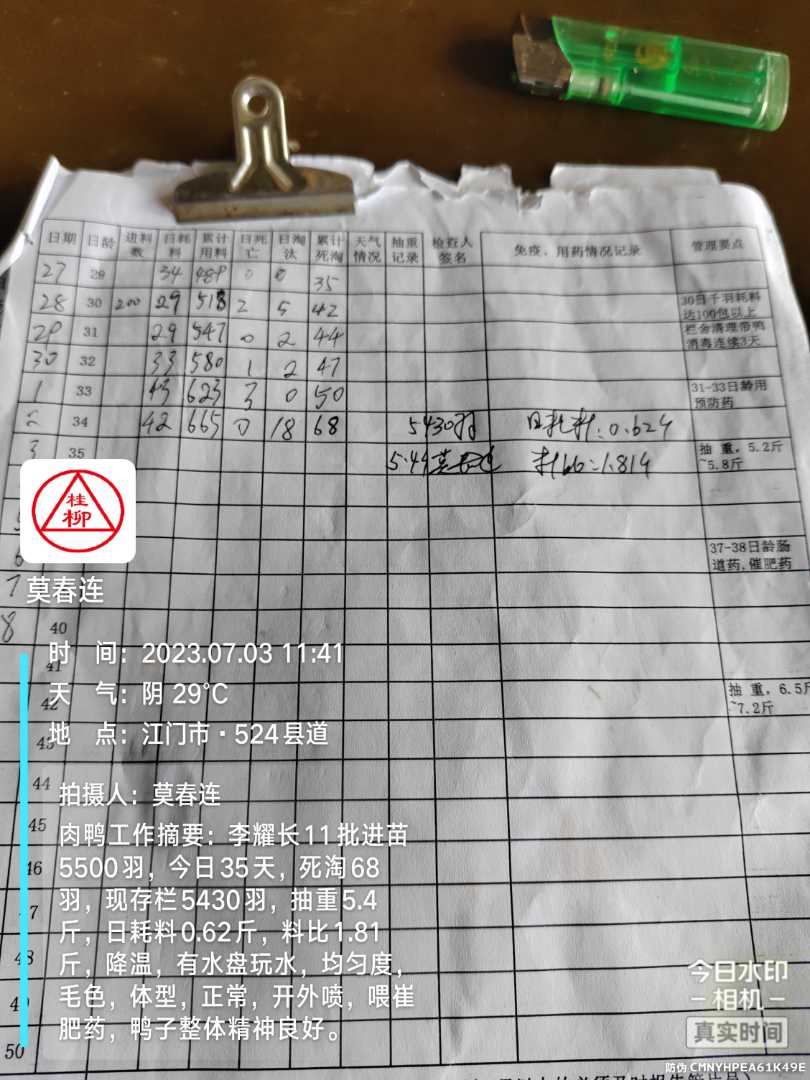 日期 日龄 进料数 日耗料 累计用料 日死亡 日淘汰 累计死淘 天气情况 抽重记录 检查人签名 免疫、用药情况记录 管理要点
27 29 34 489 0 0 35
28 30 200 29 518 2 5 42 30日千羽耗料达100包以上
29 31 29 547 0 2 44 栏舍清理带鸭消毒连续3天
30 32 33 580 1 2 47
1 33 43 623 3 0 50 31-33日龄用预防药
2 34 42 665 0 18 68 5430羽 日耗料:0.624
3 35 5.44 莫春连 料比=1.814 抽重,5.2斤~5.8斤
5
6 37-38日龄肠道药,催肥药
7
8 40
41
42 抽重,6.5斤~7.2斤
43
44
45
46
47
48
49
50
桂柳
莫春连
时 间:2023.07.03 11:41
天 气:阴 29℃
地 点:江门市·524县道
拍摄人:莫春连
肉鸭工作摘要:李耀长11批进苗
5500羽,今日35天,死淘68
羽,现存栏5430羽,抽重5.4
斤,日耗料0.62斤,料比1.81
斤,降温,有水盘玩水,均匀度,
毛色,体型,正常,开外喷,喂崔
肥药,鸭子整体精神良好。
今日水印
相机
真实时间
防伪 CMNYHPEA61K49E